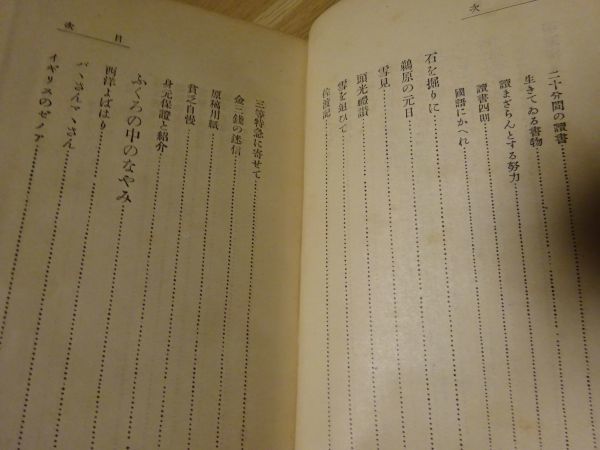 次
二十分間の讀書
生きてゐる書物
讀まざらんとする努力
讀書四則
國語にかへれ
石を掘りに
鵜原の元日
雪見
頭光禮讃
雪を追ひて
佐渡記
目次
三等特急に寄せて
金二錢の迷信
原稿用紙
貧乏自慢
身元保證と紹介
ふくろの中のなやみ
西洋よばはり
パヽさんマヽさん
イギリスのゼノア